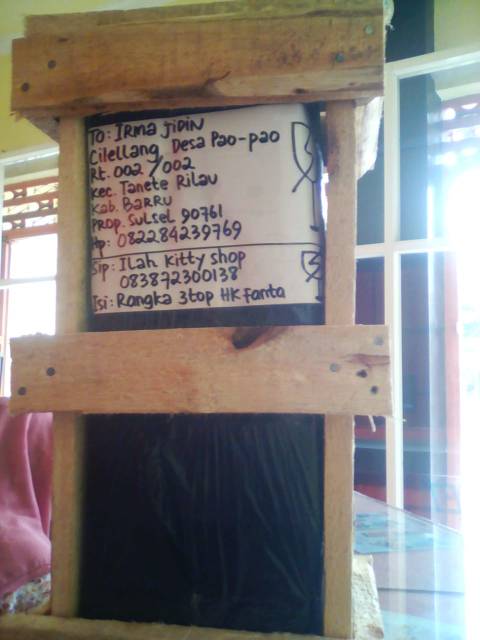 To: IRma JiDiN
Cilellang Desa Pao-pao
Rt. 002/002
Kec. Tanete Rilau
Kab. BaRRu
PRop. SulSel 90761
Hp: 082284239769
Sip: Ilah Kitty Shop
083872300138
Isi: Rangka 3top HK Fanta